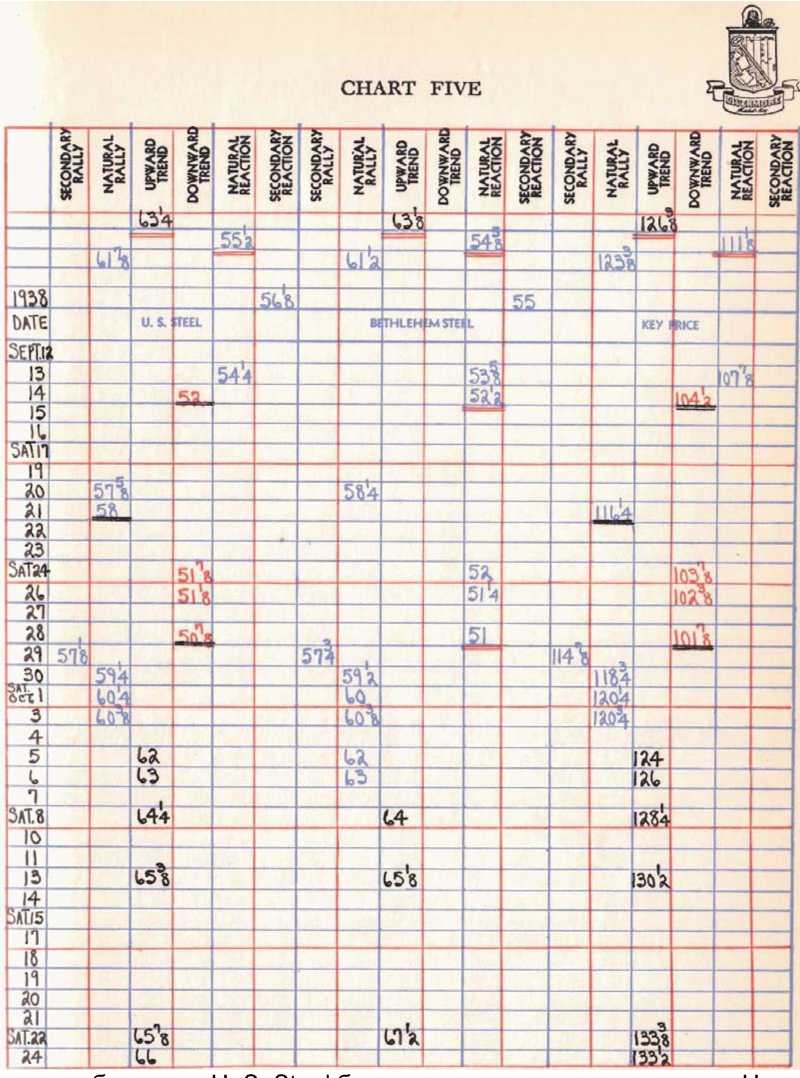 CHART FIVE
LIVERMORE
SECONDARY RALLY NATURAL RALLY UPWARD TREND DOWNWARD TREND NATURAL REACTION SECONDARY REACTION SECONDARY RALLY NATURAL RALLY UPWARD TREND DOWNWARD TREND NATURAL REACTION SECONDARY REACTION SECONDARY RALLY NATURAL RALLY UPWARD TREND DOWNWARD TREND NATURAL REACTION SECONDARY REACTION
63 1/4 63 1/8 126 3/8
55 1/2 54 3/8 111 1/8
61 7/8 61 1/2 123 3/8
1938 56 1/8 55
DATE U. S. STEEL BETHLEHEM STEEL KEY PRICE
SEPT.12
13 54 1/4 53 5/8 107 7/8
14 52 52 1/2 104 1/2
15
16
SAT17
19
20 57 5/8 58 1/4
21 58 116 1/4
22
23
SAT24 51 7/8 52 103 7/8
26 51 1/8 51 1/4 102 3/8
27
28 50 7/8 51 101 7/8
29 57 1/8 57 3/4 114 7/8
30 59 1/4 59 1/2 118 3/4
SAT. OCT 1 60 1/4 60 120 1/4
3 60 3/8 60 3/8 120 3/4
4
5 62 62 124
6 63 63 126
7
SAT.8 64 1/4 64 128 1/4
10
11
13 65 3/8 65 1/8 130 1/2
14
SAT.15
17
18
19
20
21
SAT.22 65 7/8 67 1/2 133 3/8
24 66 133 1/2